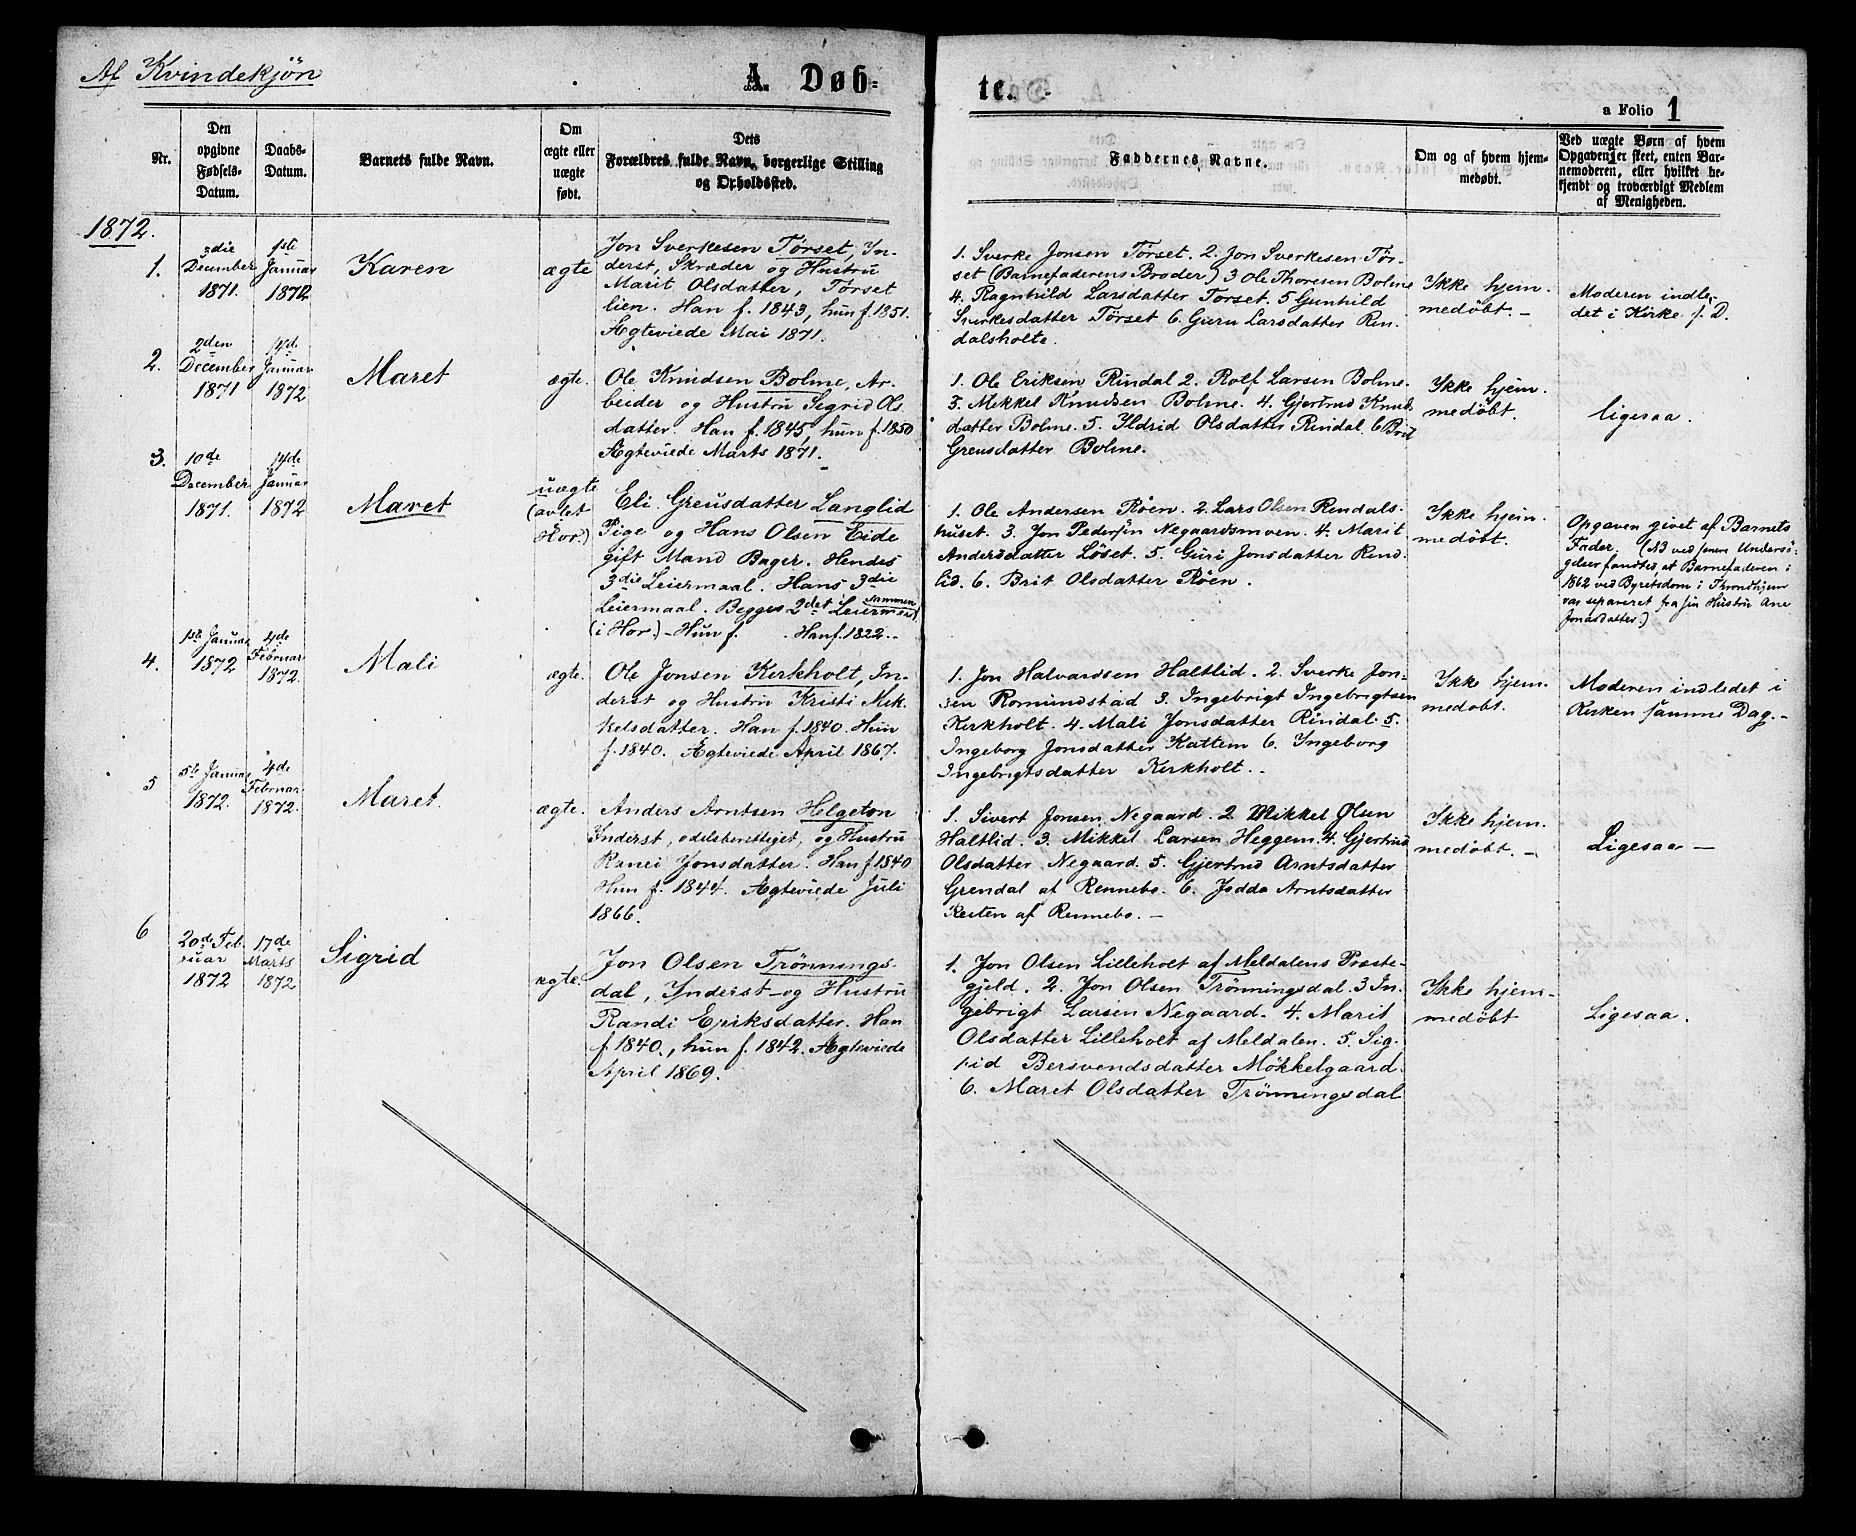 Af Kvindekjøn
A. Døb-
te.
a Folio 1
Nr.
Den
opgivne
Fødsels-
Datum.
Daabs-
Datum.
Barnets fulde Navn.
Om
ægte eller
uægte
født.
Dets
Forældres fulde Navn, borgerlige Stilling
og Opholdssted.
Faddernes Navne.
Om og af hvem hjem-
medøbt.
Ved uægte Børn af hvem
Opgaven er skeet, enten Bar-
nemoderen, eller hvilket be-
kjendt og troværdigt Medlem
af Menigheden.
1872.
1.
3die
December
1871
1ste
Januar
1872
Karen
ægte
Jon Sverkesen Tørset, In-
derst, Skræder og Hustru
Marit Olsdatter, Tørset
lien. Han f. 1843, hun f. 1851.
Ægteviede Mai 1871.
1. Sverke Jonsen Tørset. 2. Jon Sverkesen Tør-
set (Barnefaderens Broder) 3 Ole Thoresen Bolme
4. Ragnhild Larsdatter Tørset. 5 Gunhild
Sverkesdatter Tørset 6. Guru Larsdatter Rin-
dalsholte.
Ikke hjem-
medøbt. –
Moderen indle-
det i Kirke s. D.
2.
2den
December
1871
1ste
Januar
1872
Maret
ægte.
Ole Knudsen Bolme, Ar-
beider og Hustru Sigrid Ols
datter. Han f. 1845, hun f. 1850
Ægteviede Marts 1871.
1. Ole Eriksen Rindal 2. Rolf Larsen Bolme.
3. Mikkel Knudsen Bolme. 4. Gjertrud Knuds
datter Bolme. 5. Ildrid Olsdatter Rindal. 6 Brit
Greusdatter Bolme.
Ikke hjem-
medøbt.
ligesaa.
3.
10de
December
1871.
14de
Januar
1872
Maret
uægte
(avlet
Hor.)
Eli Greusdatter Langlid
Pige og Hans Olsen Eide
gift Mand Bager. Hendes
3die Leiermaal. Hans 3die
Leiermaal. Begges 2det Leiermaal sammen
(i Hor.) – Hun f. . Han f. 1822. –
1. Ole Andersen Røen. 2. Lars Olsen Rindals-
huset. 3. Jon Pedersøn Negaardsmoen. 4. Marit
Andersdatter Løset. 5. Guri Jonsdatter Rind-
lid. 6. Brit Olsdatter Røen.
Ikke hjem-
medøbt.
Opgaven givet af Barnets
Fader. (NB ved senere Undersø-
gelser fandtes at Barnefaderen i
1862 ved Byretsdom i Trondhjem
var separeret fra sin Hustru Ane
Jonasdatter.)
4.
1ste Januar
1872
4de
Februar
1872.
Mali
ægte.
Ole Jonsen Kirkholt, In-
derst og Hustru Kristi Mik-
kelsdatter. Han f. 1840. Hun
f. 1840. Ægteviede April 1867.
1. Jon Halvardsen Haltlid. 2. Sverke Jon-
sen Romundstad 3. Ingebrigt Ingebrigtsen
Kirkholt. 4. Mali Jonsdatter Rindal 5.
Ingeborg Jonsdatter Kattem 6. Ingeborg
Ingebrigtsdatter Kirkholt. –
Ikke hjem-
medøbt.
Moderen indledet i
Kirken samme Dag. –
5
5te Januar
1872.
4de
Februar
1872.
Maret.
ægte.
Anders Arntsen Helgeton
Inderst, odelsberettiget, og Hustru
Ranei Jonsdatter. Han f 1840
Hun f. 1844. Ægteviede Juli
1866.
1. Sivert Jonsen Negaard. 2 Mikkel Olsen
Haltlid. 3. Mikkel Larsen Heggem. 4. Gjertrud
Olsdatter Negaard. 5. Gjertrud Arntsdatter
Grendal af Rennebo. 6. Jodda Arntsdatter
Resten af Rennebo. –
Ikke hjem-
medøbt. –
Ligesaa –
6
20de Feb-
ruar
1872
17de
Marts
1872
Sigrid
ægte.
Jon Olsen Trønnings-
dal, Inderst og Hustru
Randi Eriksdatter. Han
f. 1840., hun f. 1842. Ægteviede
April 1869.
1. Jon Olsen Lilleholt af Meldalens Præste-
gjeld. 2. Jon Olsen Trønningsdal. 3 In-
gebrigt Larsen Negaard. 4. Marit
Olsdatter Lilleholt af Meldalen. 5. Sig-
rid Bersvendsdatter Møkkelgaard.
6. Maret Olsdatter Trønningsdal
Ikke hjem-
medøbt
Ligesaa.